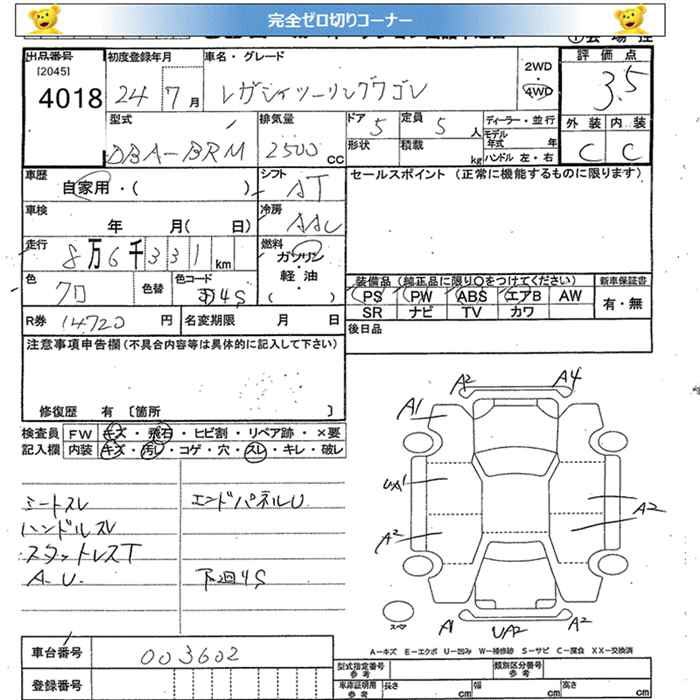 完全ゼロ切りコーナー
出品番号
[2045]
4018
初度登録年月
24 7月
車名・グレード
レガシィツーリングワゴン
2WD
・
4WD
評価点
3.5
外装 内装
C C
型式
DBA-BRM
排気量
2500 CC
ドア 5
定員 5 人
形状
積載 kg
ディーラー・並行
モデル年式 年
ハンドル 左・右
車歴
自家用・( )
シフト
AT
セールスポイント (正常に機能するものに限ります)
車検
年 月( 日)
冷房
AAC
走行
8万6千331km
燃料
ガソリン
・
軽油
( )
色
クロ
色替
色コード
D4S
装備品 (純正品に限り○をつけてください)
PS PW ABS エアB AW
SR ナビ TV カワ
新車保証書
有・無
R券 14720 円
名変期限 月 日
後日品
注意事項申告欄(不具合内容等は具体的に記入して下さい)
修復歴 有 〔箇所 〕
検査員 FW キズ・飛石・ヒビ割・リペア跡・×要
記入欄 内装 キズ・汚レ・コゲ・穴・スレ・キレ・破レ
シートスレ
ハンドルスレ
スタットレスT
A.U.
エンドパネルU
下廻4S
A2 A4
A1
UA1
A2
A2
A1 UA2 A2
スペア
A-キズ E-エクボ U-凹み W-補修跡 S-サビ C-腐食 XX-交換済
車台番号
003602
登録番号
型式指定番号 参考
類別区分番号 参考
車庫証明用 参考
長さ cm 幅 cm 高さ cm